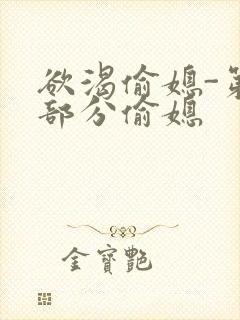 欲渴偷媳-第
部分偷媳
金寶艷